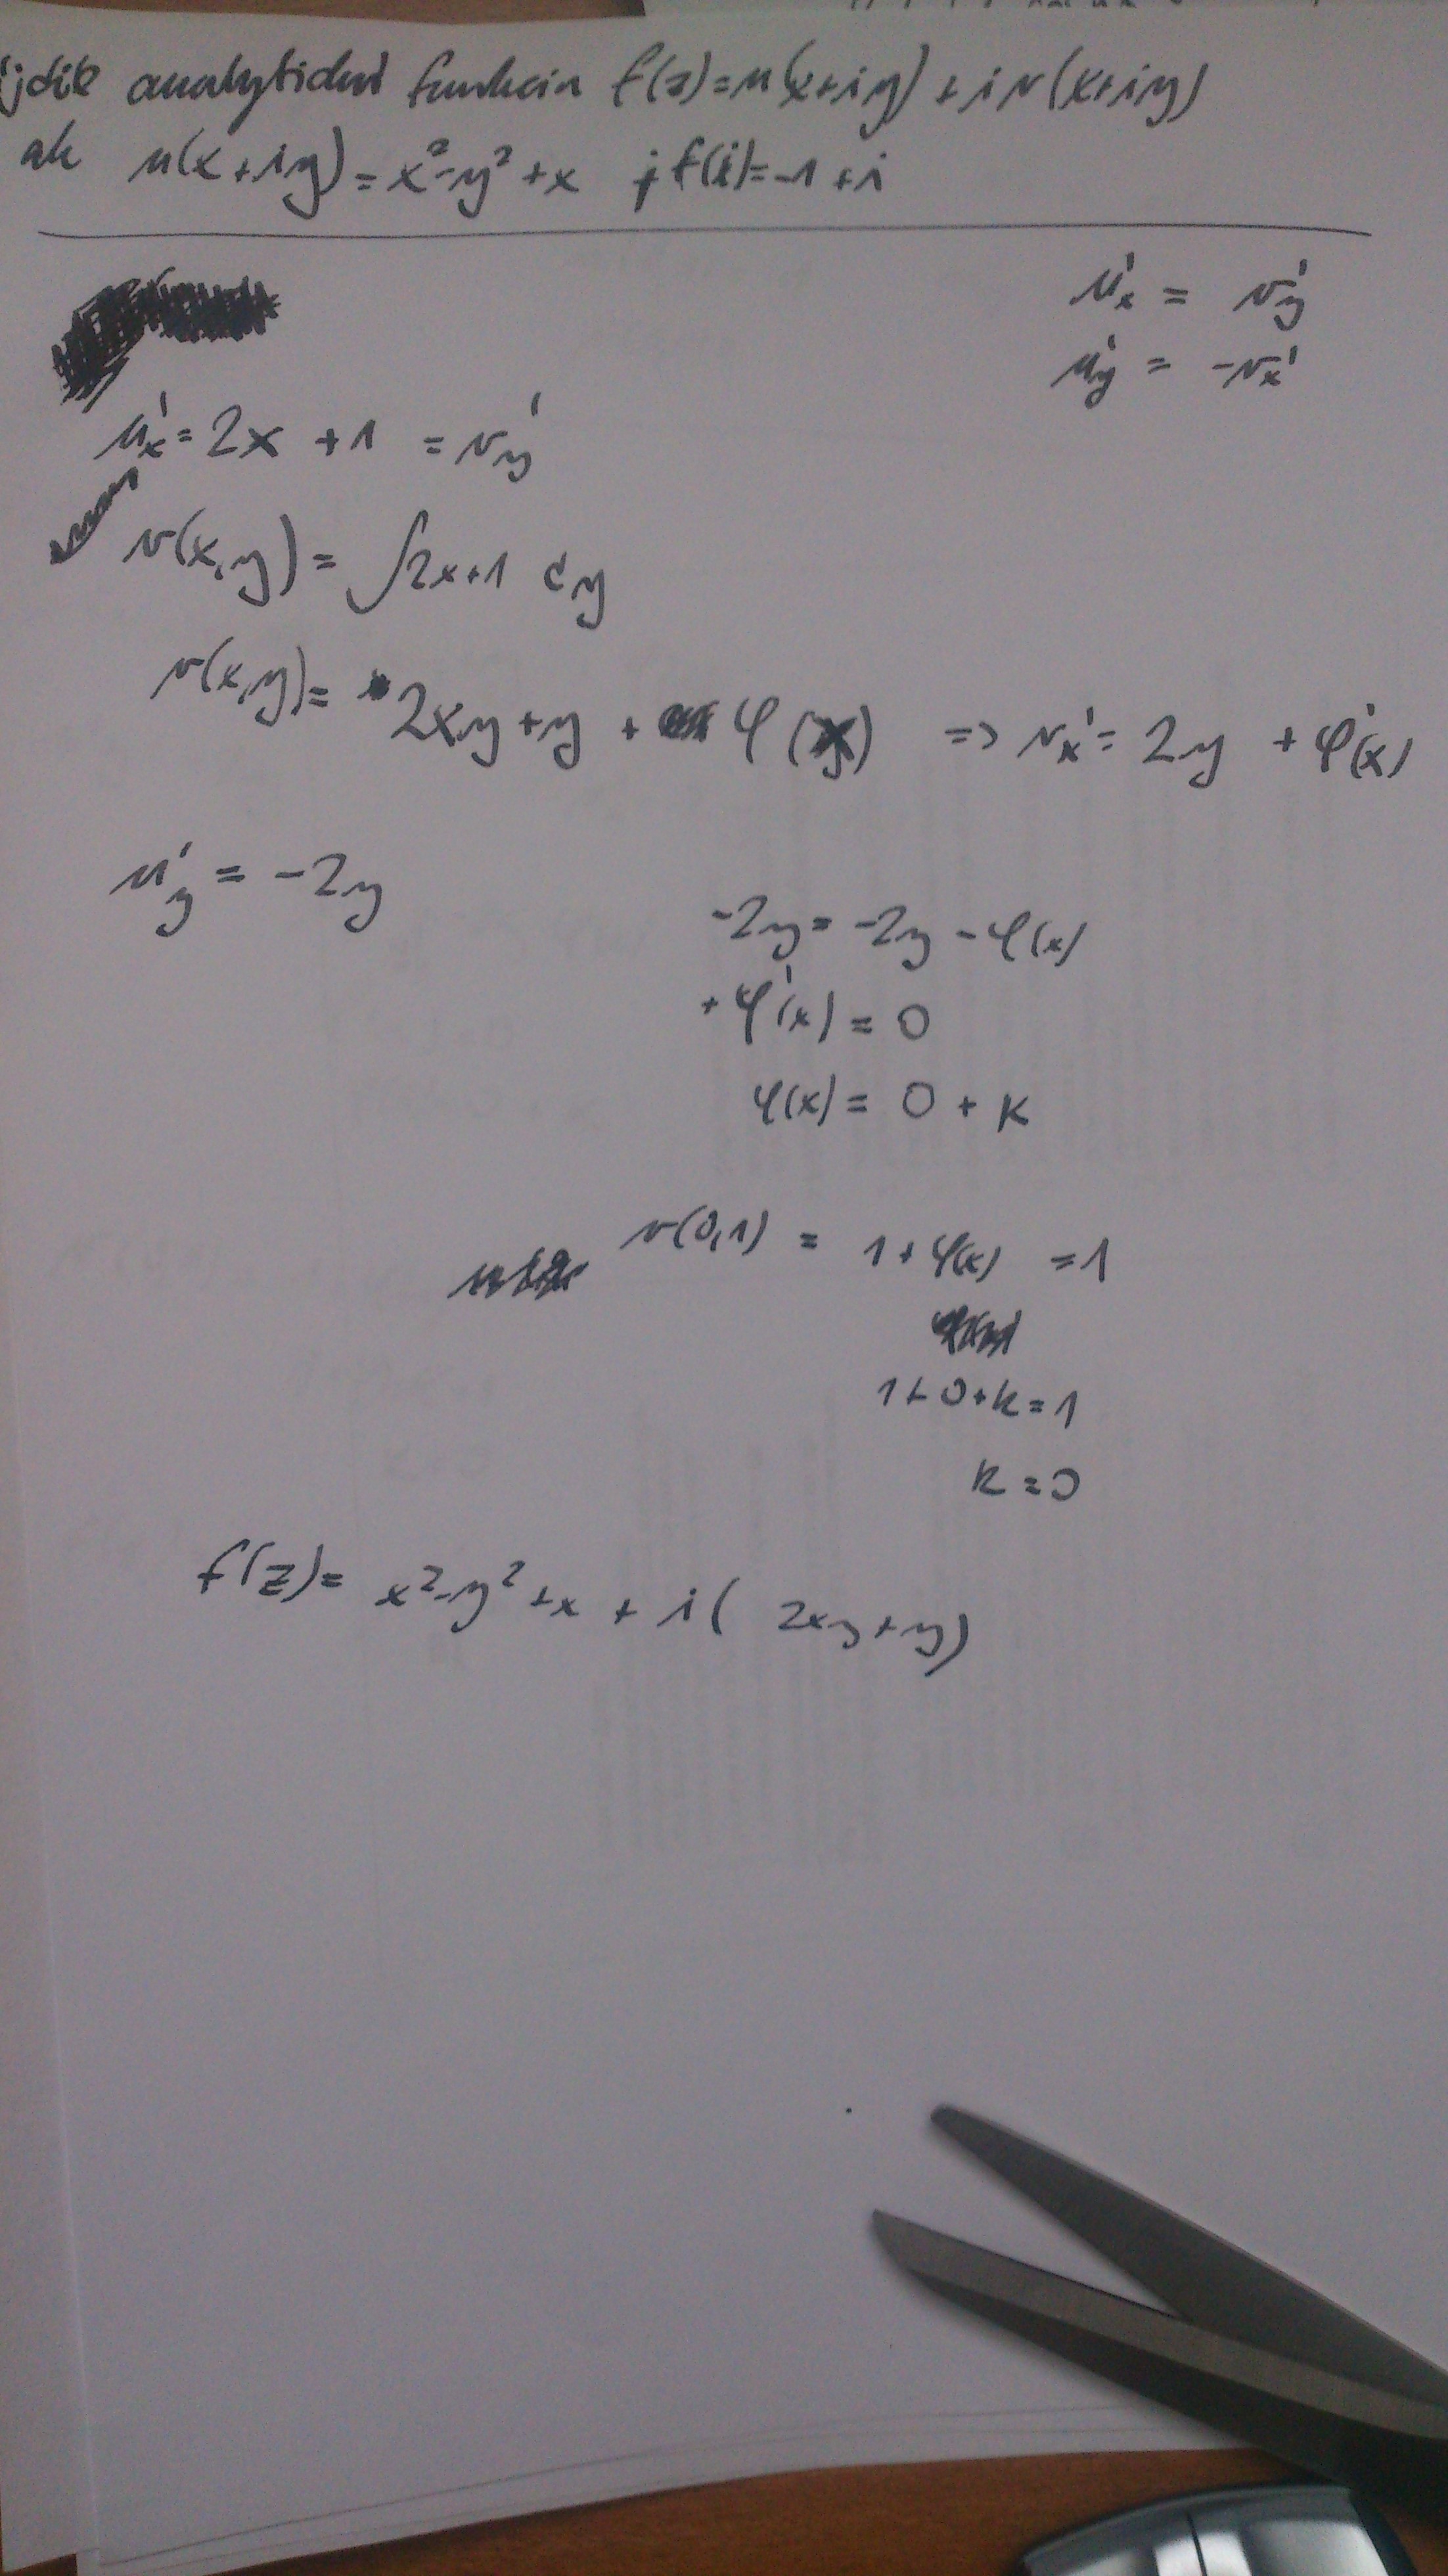 analytickú funkciu f(z)=u(x+iy)+iv(x+iy)
ak u(x+iy)=x²-y²+x ; f(i)=-1+i
u'x = v'y
u'y = -vx'
u'x=2x+1=vy'
v(x,y)=∫2x+1 dy
v(x,y)=2xy+y+φ(x) => vx'=2y+φ'(x)
u'y=-2y
-2y=-2y-φ(x)
+φ'(x)=0
φ(x)=0+k
v(0,1)=1+φ(x)=1
1+0+k=1
k=0
f(z)=x²-y²+x+i(2xy+y)